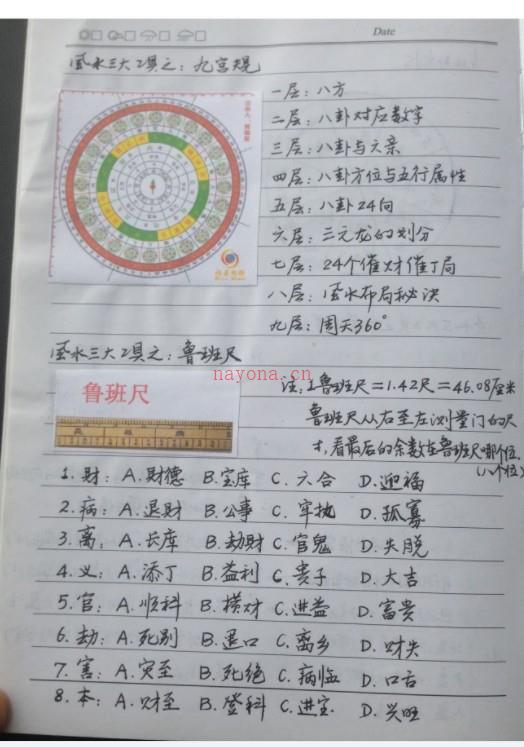 Date
风水三大工具之：九宫规
一层：八方
二层：八卦对应数字
三层：八卦与六亲
四层：八卦方位与五行属性
五层：八卦24向
六层：三元龙的划分
七层：24个催财催丁局
八层：风水布局秘诀
九层：周天360°
风水三大工具之：鲁班尺
nayona.cn
鲁班尺
注：1鲁班尺=1.42尺=46.08厘米
鲁班尺从右至左测量门的尺
寸，看最后的余数在鲁班尺哪个位
(八个位)
1.财：A.财德 B.宝库 C.六合 D.迎福
2.病：A.退财 B.公事 C.牢执 D.孤寡
3.离：A.长库 B.劫财 C.官鬼 D.失脱
4.义：A.添丁 B.益利 C.贵子 D.大吉
5.官：A.顺科 B.横财 C.进益 D.富贵
6.劫：A.死别 B.退口 C.离乡 D.财失
7.害：A.灾至 B.死绝 C.病临 D.口舌
8.本：A.财至 B.登科 C.进宝 D.兴旺